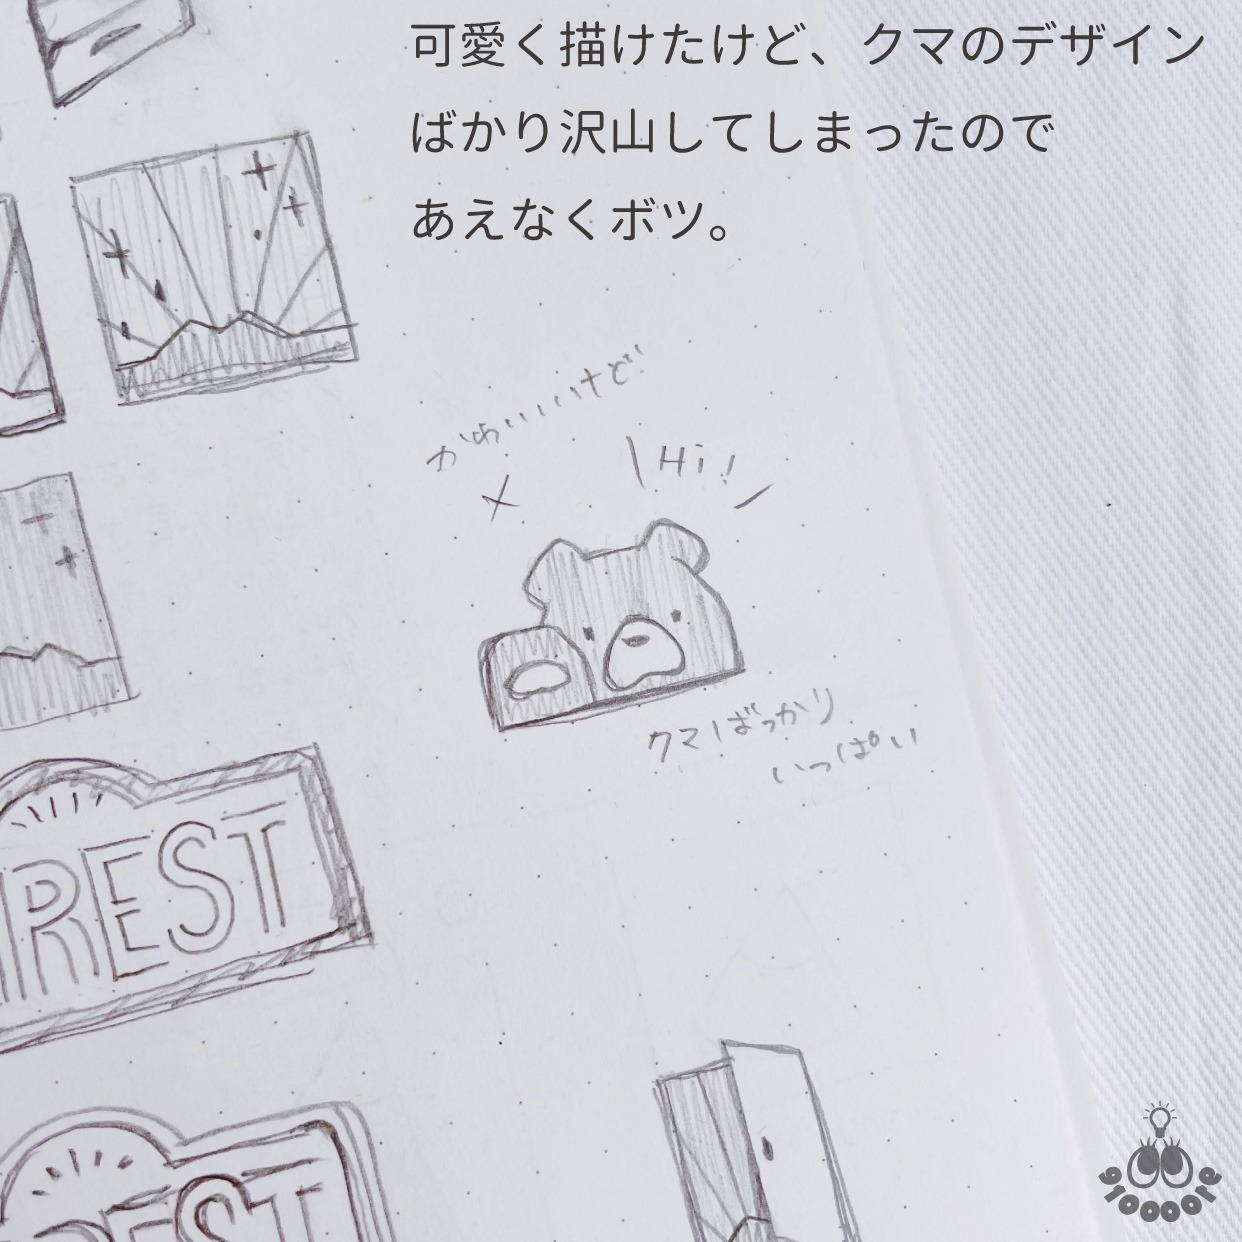 可愛く描けたけど、クマのデザイン
ばかり沢山してしまったので
あえなくボツ。
かわいいけど
Hi!
クマばっかり
いっぱい
REST
REST